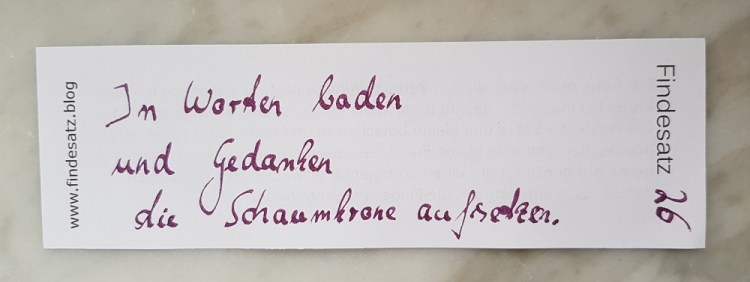 www.findesatz.blog
In Worten baden
und Gedanken
die Schaumkrone aufsetzen.
Findesatz 26